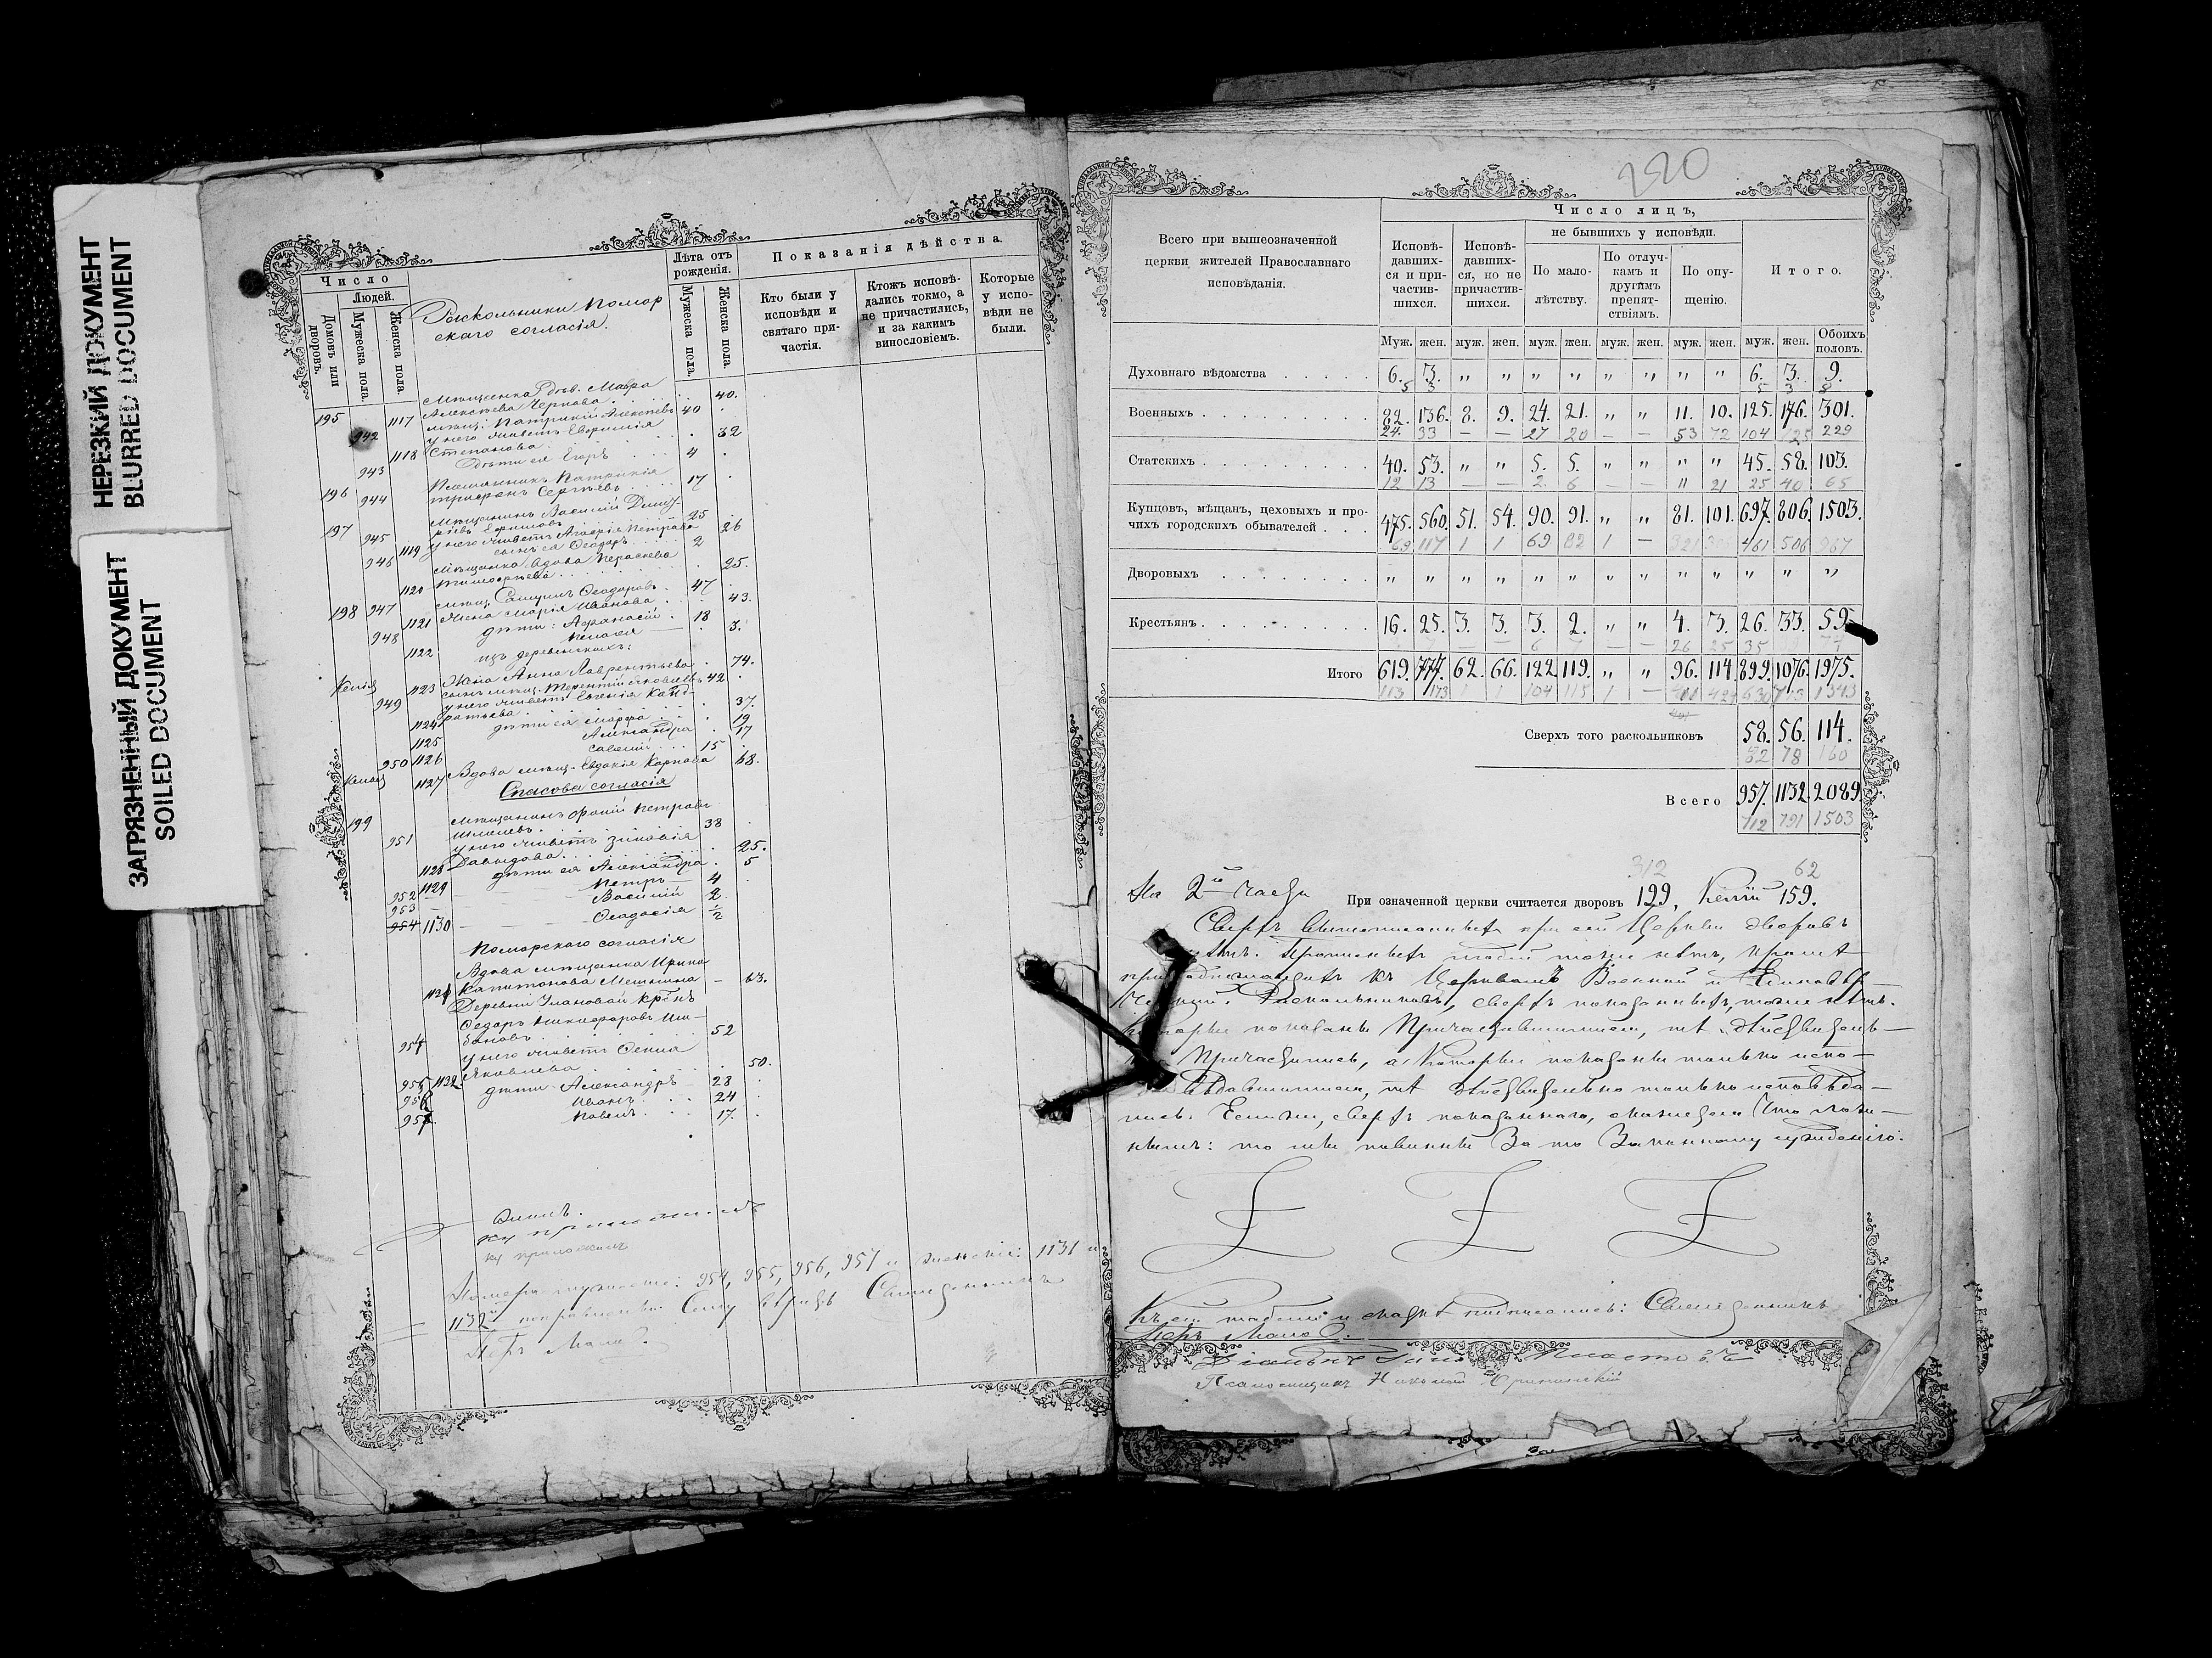 НЕРЕЗКИЙ ДОКУМЕНТ
BLURRED DOCUMENT
ЗАГРЯЗНЕННЫЙ ДОКУМЕНТ
SOILED DOCUMENT
Число
Людей.
Домовъ или дворовъ.
Мужеска пола.
Женска пола.
Раскольники Помор
скаго согласія.
Лѣта отъ рожденія.
Мужеска пола.
Женска пола.
Показанія дѣйства.
Кто были у исповѣди и святаго причастія.
Ктожъ исповѣдались токмо, а не причастились, и за какимъ винословіемъ.
Которые у исповѣди не были.
Мѣщанка вдов. Мавра
195 1117 Алексѣева Чернова 40.
942 мѣщ: Патрикій Алексѣевъ 40
у него живетъ Евфимія
1118 Степанова 32
943 дѣти ея Егоръ 4
Племянникъ Патрикія
196 944 Трифонъ Сергѣевъ 17
Мѣщанинъ Василій
197 945 Ефимовъ 25
1119 у него живетъ Агафія Петрова 26
946 сынъ ея Ѳеодоръ 2
Мѣщанка вдова
1120 Тимоѳеева 25.
198 947 мѣщ. Ѳеодоровъ 47
1121 Жена Марія Иванова 43.
948 дѣти: Аѳанасій 18
1122 3.
изъ деревенскихъ:
Келія 1123 Анна Лаврентьева 74.
949 сынъ мѣщ. Терентій Яковлевъ 42
у него живетъ Евгенія Конд-
1124 ратьева 37.
1125 дѣти ея Марфа 19
1126 Александра 17
950 Савелій 15
Келія 1127 Вдова мѣщ. Евдокія Карпова 68.
Спасова согласія
199 Мѣщанинъ Петровъ
951 Шмелевъ 38
у него живетъ Зиновія
1128 Давыдова 25.
1129 дѣти ея Александра 5
952 Петръ 4
953 Василій 2.
954 1130 Ѳеодосія ½
Поморскаго согласія
Вдова мѣщанка Ирина
1131 Капитонова Мешкина 63.
Деревни Улановой кр-нъ
Ѳедоръ Никифоровъ Ши-
954 бановъ 52
у него живетъ Ѳекла
1132 Яковлева 50.
955 дѣти Александръ 28
956 Иванъ 24
957 Павелъ 17.
руку приложилъ
Номера мужскіе: 954, 955, 956, 957 и женскіе: 1131 и
1132 поправлены. Священникъ
220
Всего при вышеозначенной церкви жителей Православнаго исповѣданія.
Число лицъ,
Исповѣдавшихся и причастившихся.
Исповѣдавшихся, но не причастившихся.
не бывшихъ у исповѣди.
По малолѣтству.
По отлучкамъ и другимъ препятствіямъ.
По опущенію.
Итого.
Муж. жен. муж. жен. муж. жен. муж. жен. муж. жен. муж. жен. Обоихъ половъ.
Духовнаго вѣдомства 6. 3. „ „ „ „ „ „ „ „ 6. 3. 9.
5 3 5 3 8
Военныхъ 82. 136. 8. 9. 24. 21. „ „ 11. 10. 125. 176. 301.
24. 33 — — 27 20 — — 53 72 104 125 229
Статскихъ 40. 53. „ „ 5. 5. „ „ „ „ 45. 58. 103.
12 13 — — 2 6 — — 11 21 25 40 65
Купцовъ, мѣщанъ, цеховыхъ и прочихъ городскихъ обывателей 475. 560. 51. 54. 90. 91. „ „ 81. 101. 697. 806. 1503.
69 117 1 1 69 82 1 — 461 506 967
Дворовыхъ „ „ „ „ „ „ „ „ „ „ „ „ „
Крестьянъ 16. 25. 3. 3. 3. 2. „ „ 4. 3. 26. 33. 59.
26 25 35
Итого 619. 777. 62. 66. 122. 119. „ „ 96. 114. 899. 1076. 1975.
113 173 1 1 104 115 1 —
Сверхъ того раскольниковъ 58. 56. 114.
82 78 160
Всего 957. 1132. 2089.
712 791 1503
312 62
На 2й части При означенной церкви считается дворовъ 199, Келій 159.
Сверхъ вышеписанныхъ при сей Церкви дворовъ
нѣтъ. также нѣтъ, кромѣ
къ Церквамъ Военной и Единовѣр-
ческой. Раскольниковъ, сверхъ показанныхъ, тоже нѣтъ.
Которые показаны Причастившимися, тѣ дѣйствитель-
но Причастились, а которые показаны только испо-
вѣдавшимися, тѣ дѣйствительно только исповѣда-
лись. Если же, сверхъ показаннаго, окажется что лож-
нымъ: то мы повинны за то Законному сужденію.
Къ сей подписались: Священникъ
Псаломщикъ Николай